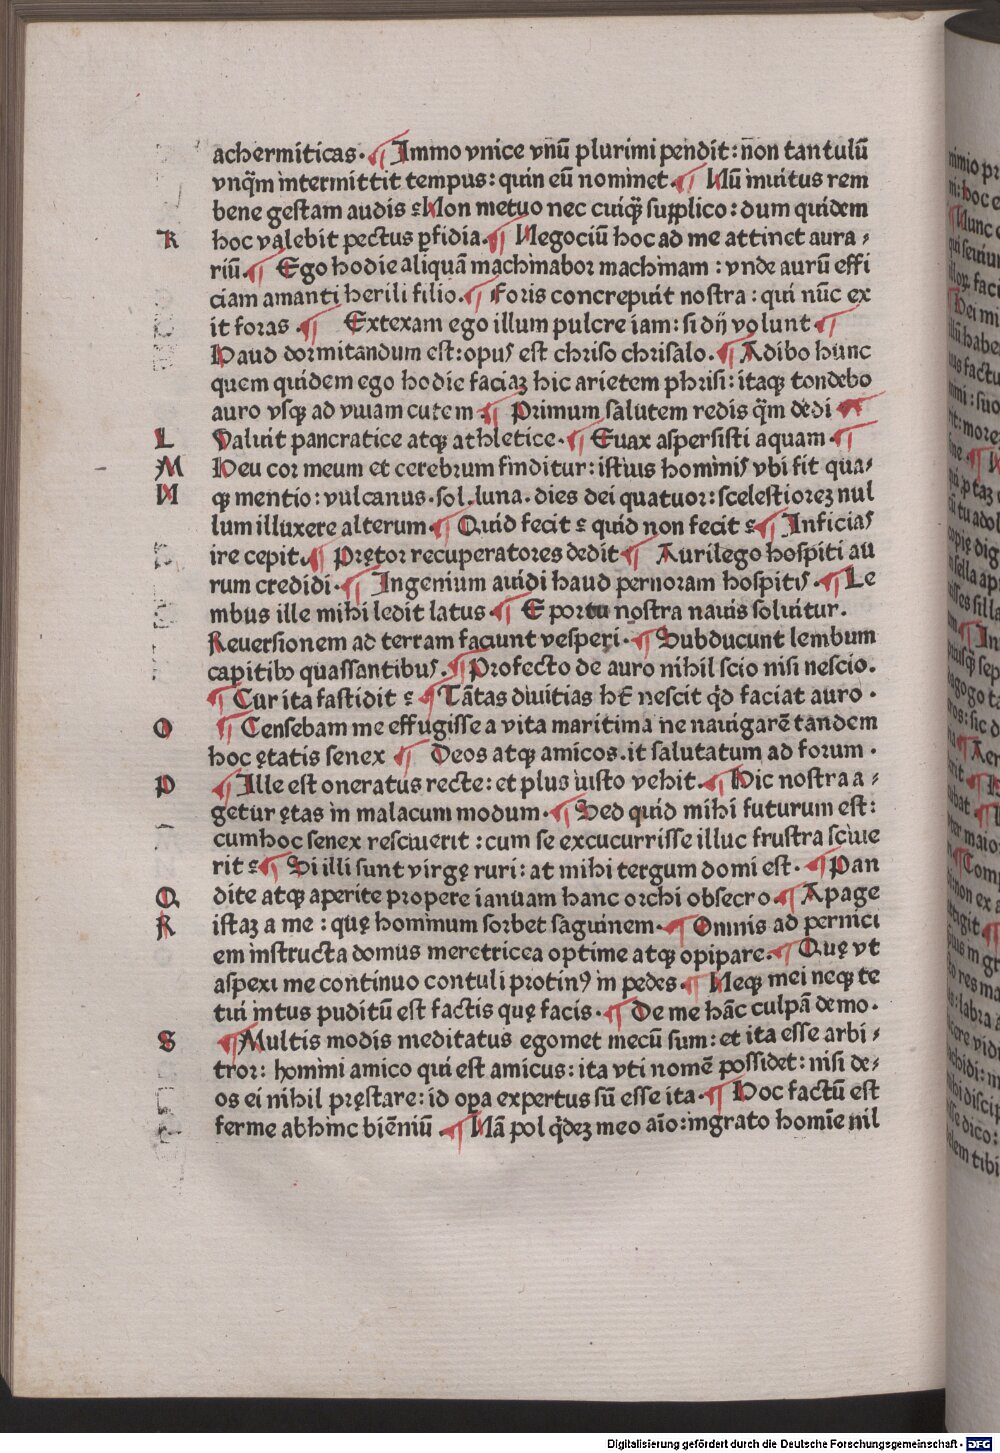 achermiticas. ¶ Immo vnice vnū plurimi pendit: non tantulū
vnq̄m intermittit tempus: quin eū nominet. ¶ Nū inuitus rem
bene gestam audis ꝛ Non metuo nec cuiqꝫ supplico: dum quidem
K hoc valebit pectus ꝑfidia. ¶ Negociū hoc ad me attinet aura⸗
riū. ¶ Ego hodie aliquā machinabor machinam: vnde aurū effi
ciam amanti herili filio. ¶ Foris concrepuit nostra: qui nūc ex
it foras. ¶ Extexam ego illum pulcre iam: si dij volunt ¶
Haud dormitandum est: opus est chriso chrisalo. ¶ Adibo hunc
quem quidem ego hodie faciaꝫ hic arietem phrisi: itaqꝫ tondebo
auro vsqꝫ ad viuam cutem ¶ Primum salutem redis q̄m dedi ¶
L Valuit pancratice atqꝫ athletice. ¶ Euax aspersisti aquam ¶
M Heu cor meum et cerebrum finditur: istius hominis vbi fit qua⸗
N qꝫ mentio: vulcanus. sol. luna. dies dei quatuor: scelestioreꝫ nul
lum illuxere alterum. ¶ Quid fecit ꝛ quid non fecit ꝛ ¶ Inficias
ire cepit. ¶ Prętor recuperatores dedit ¶ Aurilego hospiti au
rum credidi. ¶ Ingenium auidi haud pernoram hospitis. ¶ Le
mbus ille mihi ledit latus. ¶ E portu nostra nauis soluitur.
Reuersionem ad terram faciunt vesperi. ¶ Subducunt lembum
capitibꝫ quassantibus. ¶ Profecto de auro nihil scio nisi nescio.
¶ Cur ita fastidit ꝛ ¶ Tātas diuitias hꝫ nescit qd̄ faciat auro.
O ¶ Censebam me effugisse a vita maritima ne nauigarē tandem
hoc ętatis senex ¶ Deos atqꝫ amicos. it salutatum ad forum.
P ¶ Ille est oneratus recte: et plus iusto vehit. ¶ Hic nostra a⸗
getur ętas in malacum modum. ¶ Sed quid mihi futurum est:
cum hoc senex resciuerit: cum se excucurrisse illuc frustra sciue
rit ꝛ ¶ Si illi sunt virgę ruri: at mihi tergum domi est. ¶ Pan
Q dite atqꝫ aperite propere ianuam hanc orchi obsecro. ¶ Apage
R istaꝫ a me: quę hominum sorbet saguinem. ¶ Omnis ad pernici
em instructa domus meretricea optime atqꝫ opipare. ¶ Quę vt
aspexi me continuo contuli protinꝰ in pedes. ¶ Neqꝫ mei neqꝫ te
tui intus puditū est factis quę facis. ¶ De me hāc culpā demo.
S ¶ Multis modis meditatus egomet mecū sum: et ita esse arbi⸗
tror: homini amico qui est amicus: ita vti nomē possidet: nisi de⸗
os ei nihil pręstare: id oꝑa expertus sū esse ita. ¶ Hoc factū est
ferme abhinc biēniū. ¶ Nā pol qdeꝫ meo aīo: ingrato homīe nil
Digitalisierung gefördert durch die Deutsche Forschungsgemeinschaft - DFG